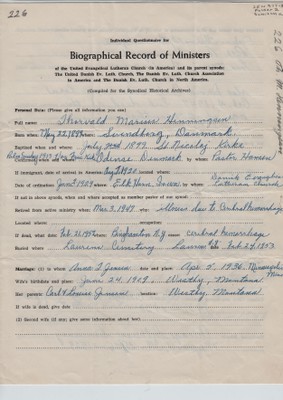 226
Individual Questionnaire for
Biographical Record of Ministers
of the United Evangelical Lutheran Church (in America) and its parent synods:
The United Danish Ev. Luth. Church, The Danish Ev. Luth. Church Association
in America and The Danish Ev. Luth. Church in North America.
(Compiled for the Synodical Historical Archives)
Personal Data: (Please give all information you can)
Full name: Thorvald Marius Henningsen
Born when: May 22, 1899 where: Svendborg, Denmark.
Baptized when and where: July 2nd 1899. St. Nicolaj Kirke
Confirmed when: Palm Sunday 1913 where: Odense Denmark by Pastor Hansen
If immigrant, date of arrival in America: Aug 1920 located where:
Date of ordination: June 1929 where: Elk Horn, Iowa by Danish Evangelical Lutheran Church
If not in above synods, when and where accepted as member or pastor of our synod:
Retired from active ministry when: Mar 3, 1947 why: illness due to Cerebral hemorrhage
Located where: occupation:
If dead, what date: Feb. 21, 1953 where: Binghamton N.Y. cause: cerebral hemorrhage
Buried where: Laurens Cemetery Laurens Feb. 24, 1953
Marriage: (1) to whom: Anna T. Jensen date and place: Apr 5, 1936
Wife's birthdate and place: June 24, 1909 Westby, Montana
Her parents: Carl & Louise Jensen location: Westby, Montana
If wife is dead, give date
(2) (Second wife if any; give same information about her)